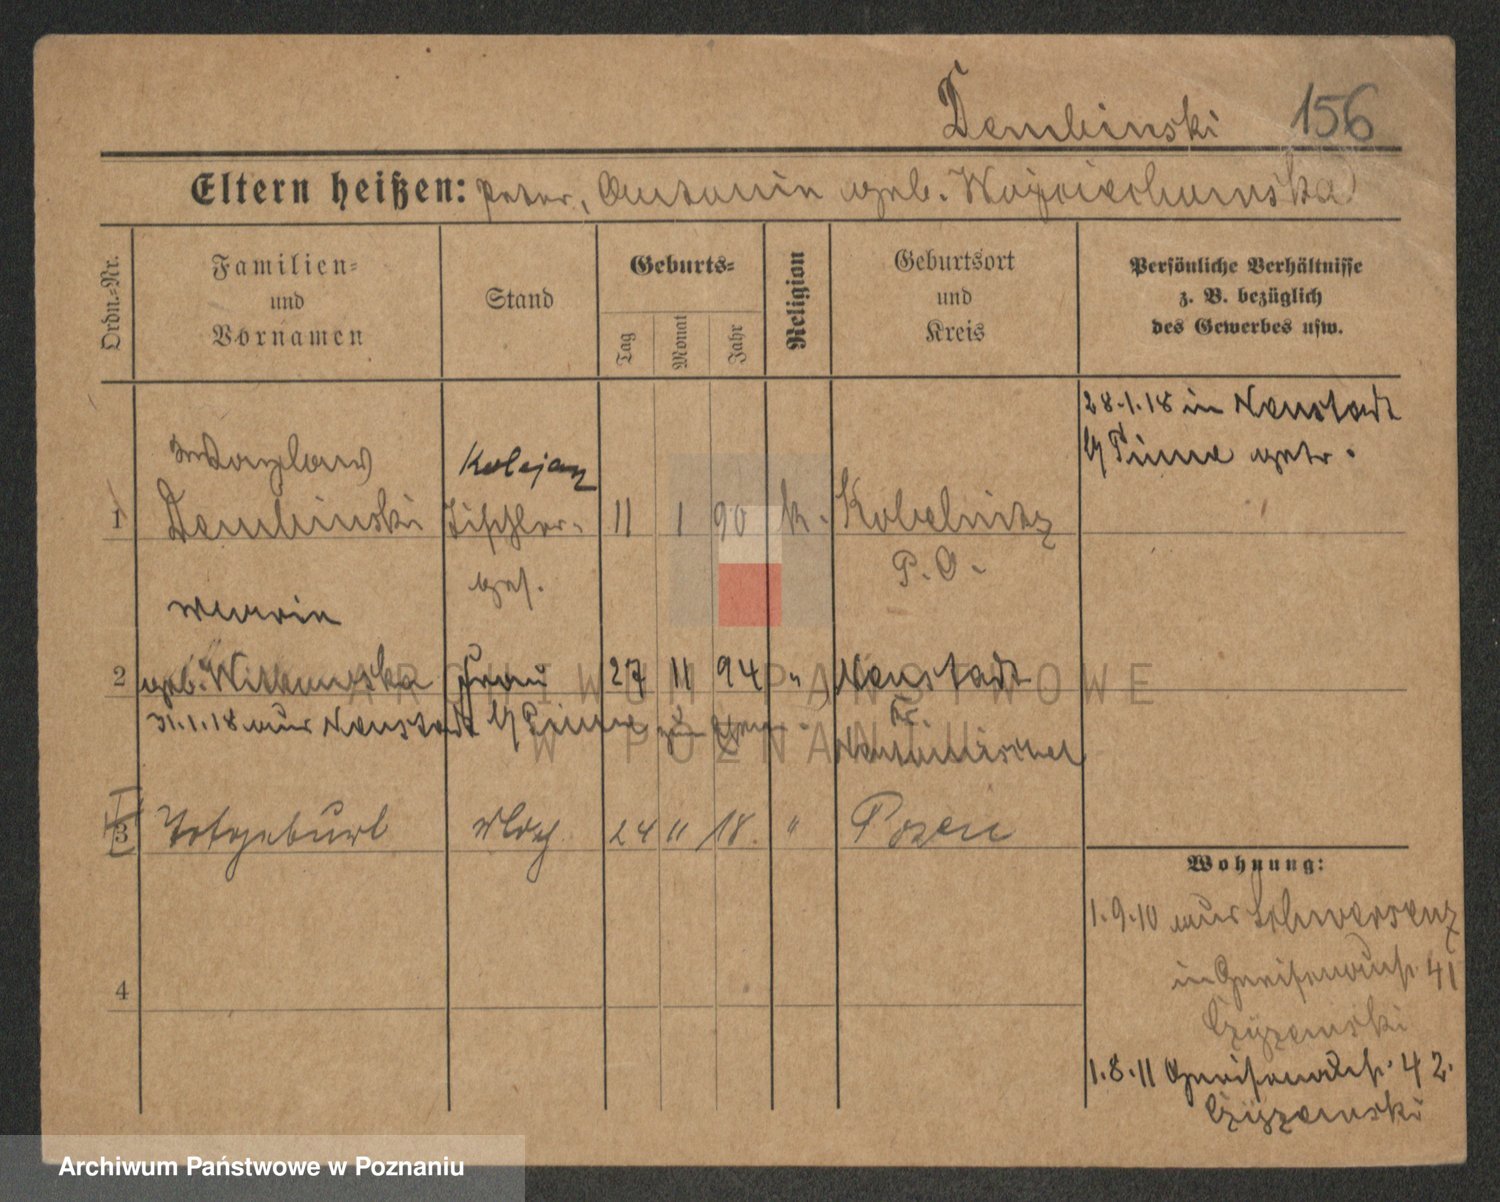 Dembinski 156
Eltern heißen: Peter, Antonin geb. Wojciechowska
Ordn.-Nr.
Familien-
und
Vornamen
Stand
Geburts-
Tag
Monat
Jahr
Religion
Geburtsort
und
Kreis
Persönliche Verhältnisse
z. B. bezüglich
des Gewerbes usw.
28.1.18 in Neustadt
b/ Pinne getr.
1
Dembinski
Tischler-
ges.
11 1 90 k.
Kobelnitz
P. O.
2
geb. Witkowska Frau 27 11 94 " Neustadt
Kr.
Neutomischel
31.1.18 aus Neustadt b/ Pinne
3 Totgeburt 24 " 18. " Posen
Wohnung:
1.9.10 aus Schwersenz
in Gneisenaustr. 41
Czyzewski
1.8.11 Gneisenaustr. 42.
Czyzewski
4
ARCHIWUM PAŃSTWOWE
W POZNANIU
Archiwum Państwowe w Poznaniu